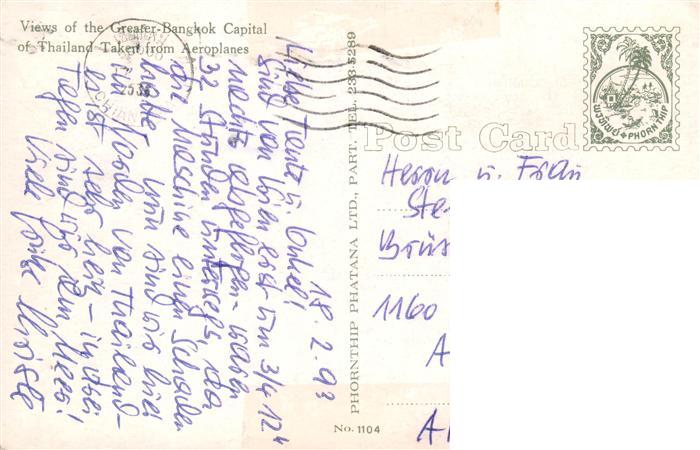 Views of the Greater-Bangkok Capital
of Thailand Taken from Aeroplanes
2536
18.2.93
Liebe Tante u. Onkel!
Sind von Wien erst um 3/4 12h
nachts abgeflogen - waren
32 Stunden unterwegs, da
die Maschine einen Schaden
hatte. Nun sind wir hier
im Norden von Thailand -
es ist sehr heiß - in drei
Tagen sind wir am Meer!
Viele Grüße
PHORNTHIP PHATANA LTD., PART. TEL. 233-5289
No. 1104
Post Card
พรทิพย์ PHORN THIP
Herrn u. Frau
Ste
Brüs
1160
A